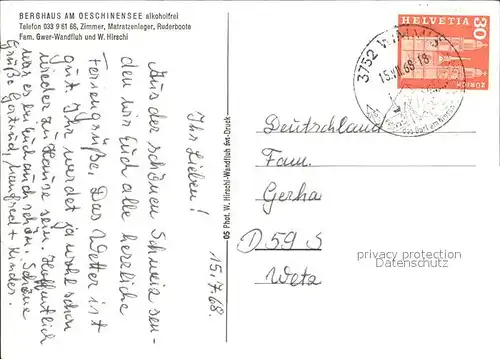 BERGHAUS AM OESCHINENSEE alkoholfrei
Telefon 033 9 61 66, Zimmer, Matratzenlager, Ruderboote
Fam. Gwer-Wandfluh und W. Hirschi
15.7.68
Ihr Lieben!
Aus der schönen Schweiz sen-
den wir Euch alle herzliche
Feriengrüße. Das Wetter ist
gut. Ihr werdet ja wohl schon
wieder zu Hause sein. Hoffentlich
war es bei Euch auch schön. Schöne
Grüße Gertrud, Manfred + Kinder.
OS Phot. W. Hirschi-Wandfluh Sct-Druck
HELVETIA
30
ZÜRICH
3752
15.VII.68-18
Deutschland
Fam.
Gerha
D 59 S
Wetz
privacy protection
Datenschutz